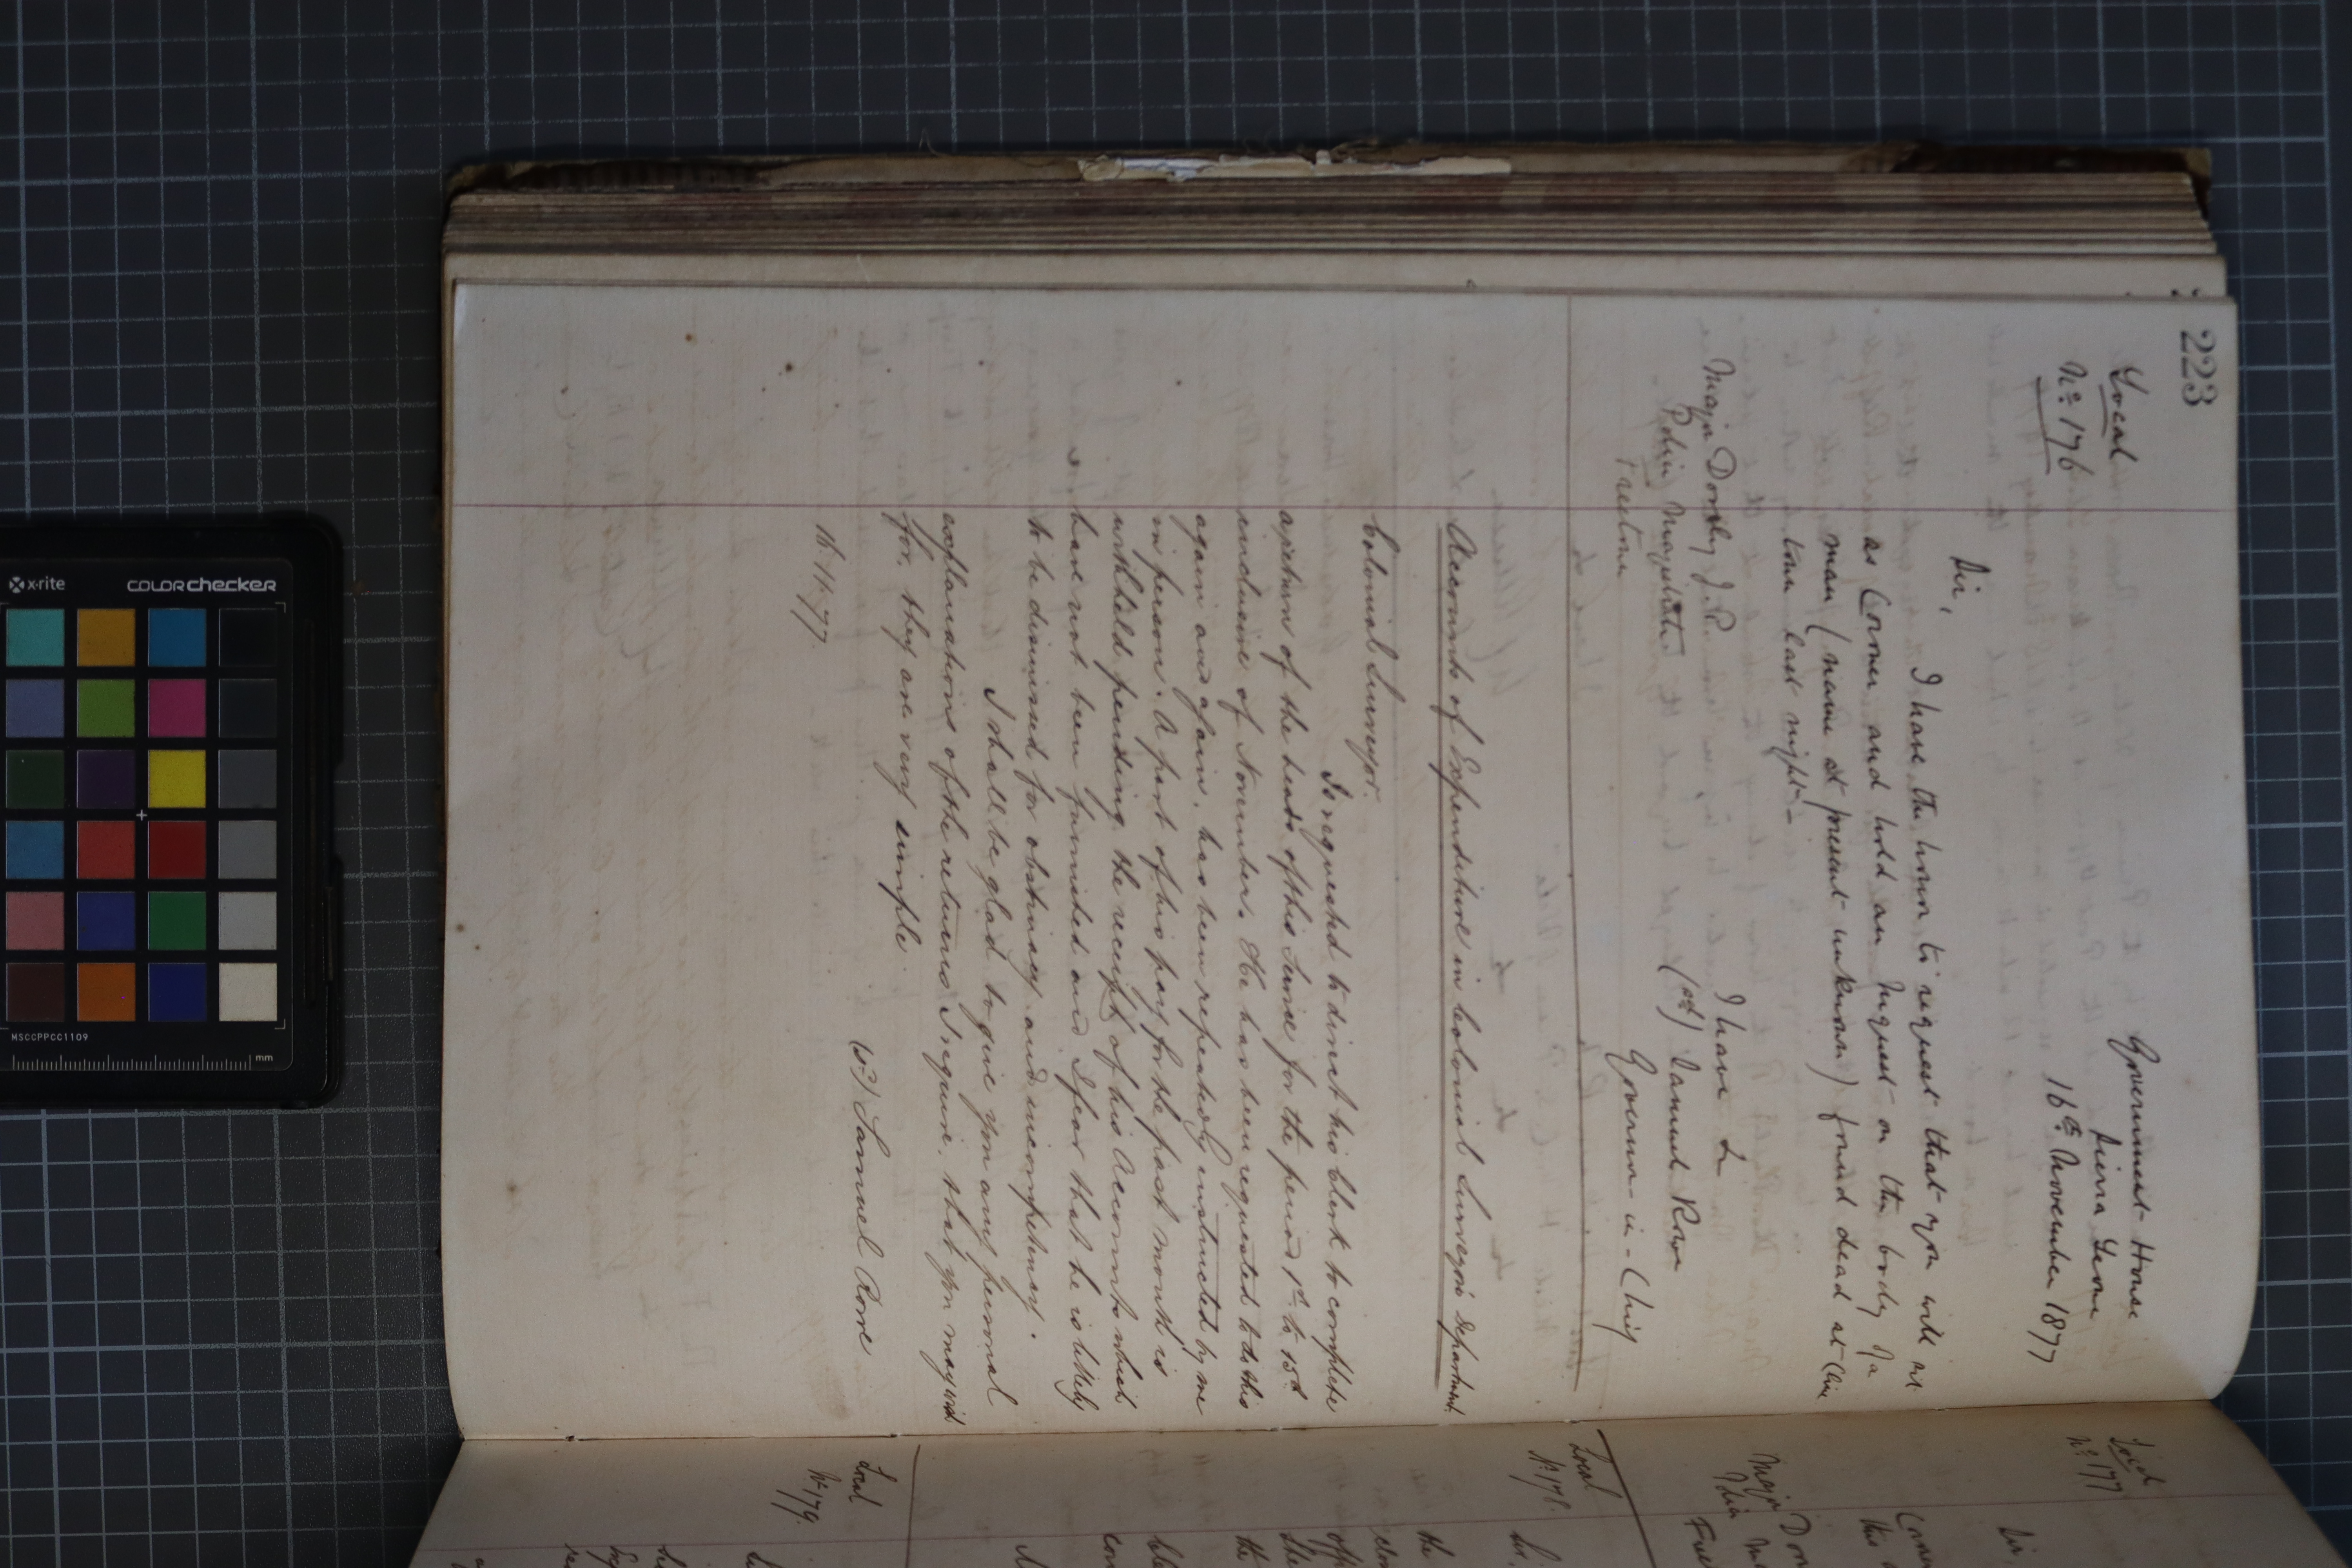 223
Local
No. 176
Government House
Sierra Leone
16th November 1877
Sir,
I have the honor to request that you will act
as Coroner and hold an Inquest on the body of a
man (name at present unknown) found dead at Cline
town last night—
I have &
(sd) Samuel Rowe
Governor-in-Chief
Major Donly J.P.
Police Magistrate
Freetown
Accounts of Expenditure in Colonial Surveyors Department.
Colonial Surveyor.
Is requested to direct his Clerk to complete
a return of the heads of this Service for the period 1st to 15th
inclusive of November. He has been requested to do this
again and again, has been repeatedly instructed by me
in person. A part of his pay for the past month is
withheld pending the receipt of his Accounts which
have not been furnished and I fear that he is likely
to be dismissed for obstinacy and incompetency.
I shall be glad to give you any personal
explanations of the returns I require, that you may wish
for, they are very simple.
(sd) Samuel Rowe
16.11.77
Local
No. 177
Sir,
Major Don
Local
No. 178.
the
Local
No. 179.
x-rite
colorchecker
MSCCPPCC1109
mm